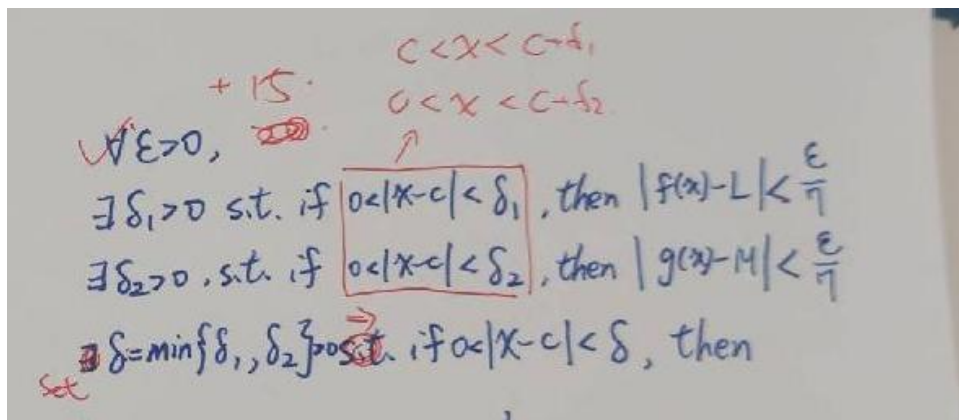 c<x<c+δ₁
+15.
0<x<c+δ₂
∀ε>0,
∃δ₁>0 s.t. if 0<|x-c|<δ₁, then |f(x)-L|<ε/7
∃δ₂>0, s.t. if 0<|x-c|<δ₂, then |g(x)-M|<ε/7
∃ δ=min{δ₁, δ₂}>0 s.t. if 0<|x-c|<δ, then
Set